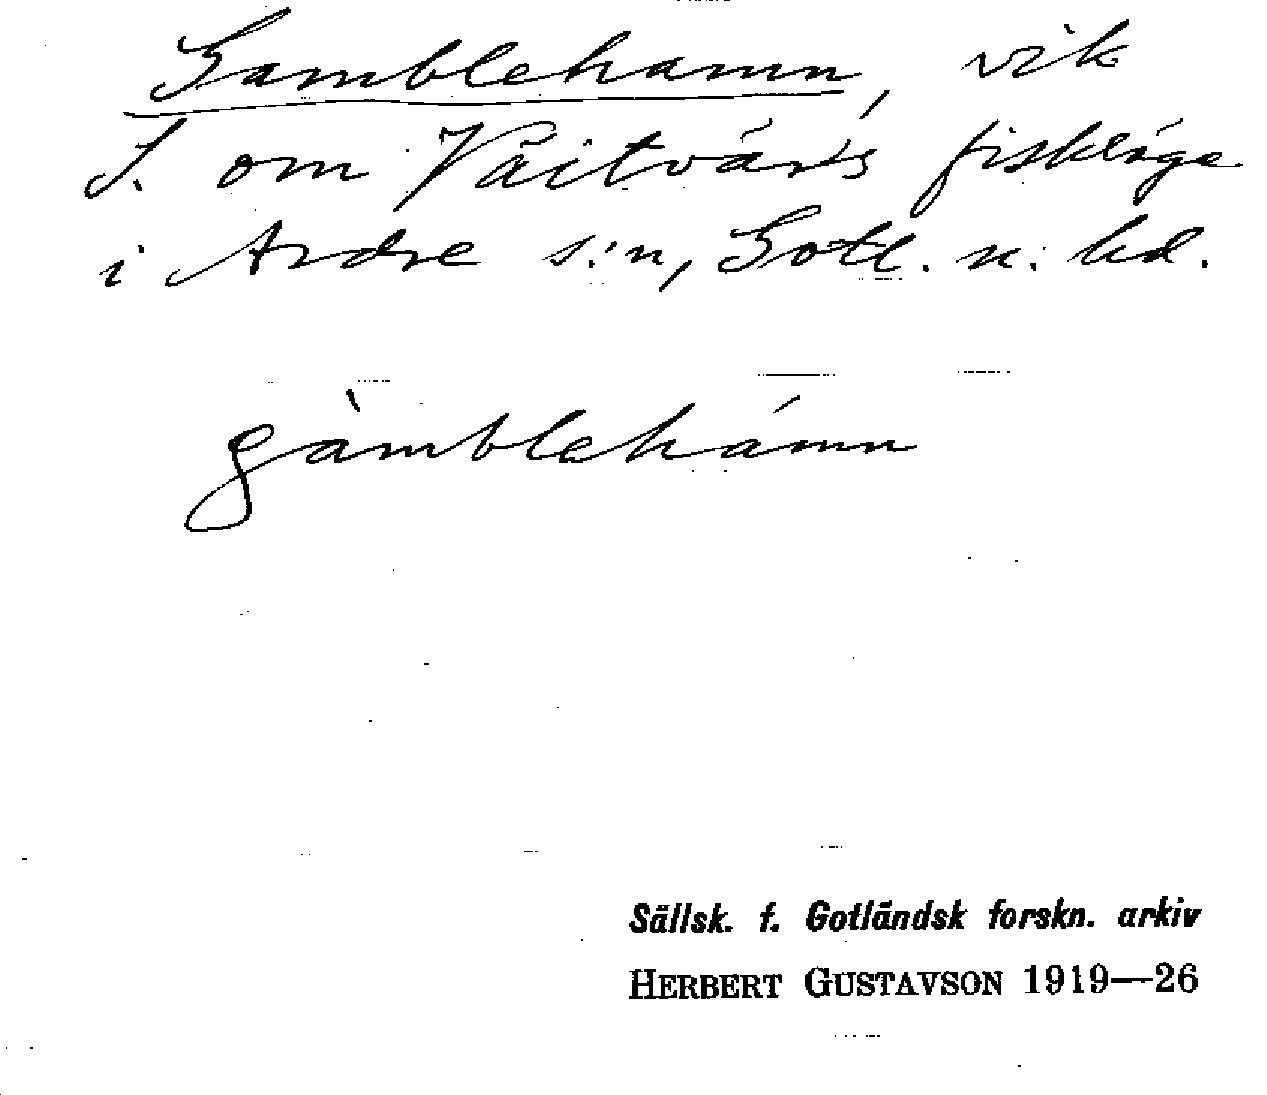 Gamblehamn, vik
S. om Väitvärs fiskläge
i Ardre s:n, Gotl. n. hd.
gàmblehámn
Sällsk. f. Gotländsk forskn. arkiv
HERBERT GUSTAVSON 1919—26